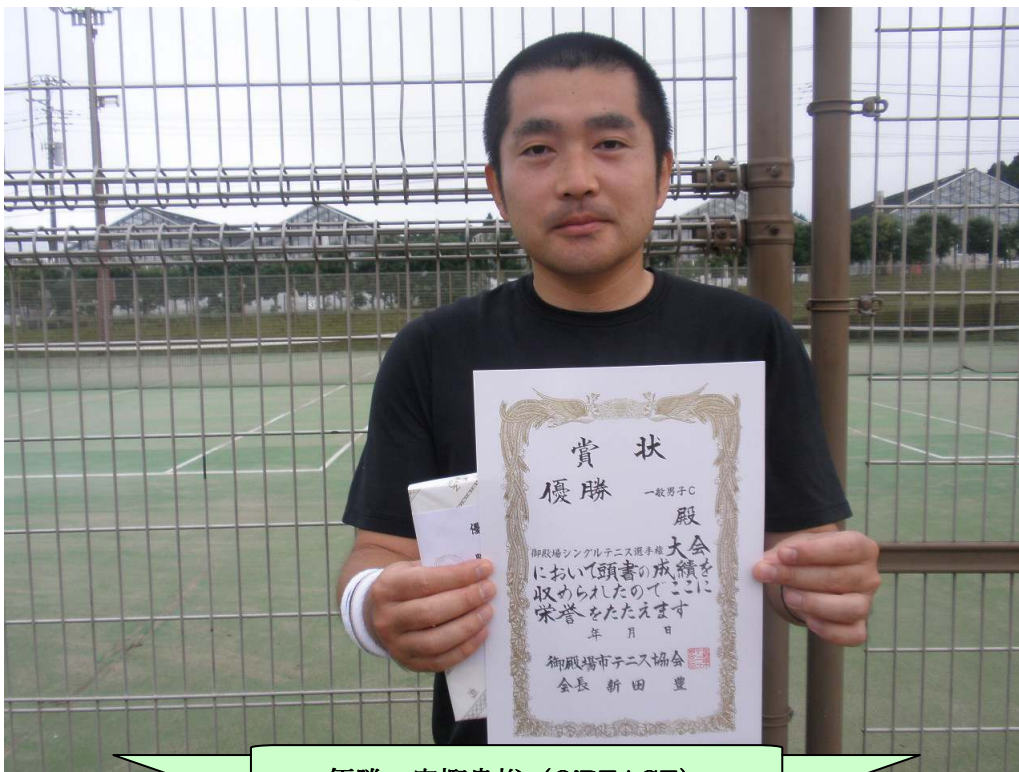 賞状
優勝 一般男子C
殿
御殿場シングルテニス選手権大会
において頭書の成績を
収められたのでここに
栄誉をたたえます
年 月 日
御殿場市テニス協会
会長 新田 豊
優
優勝